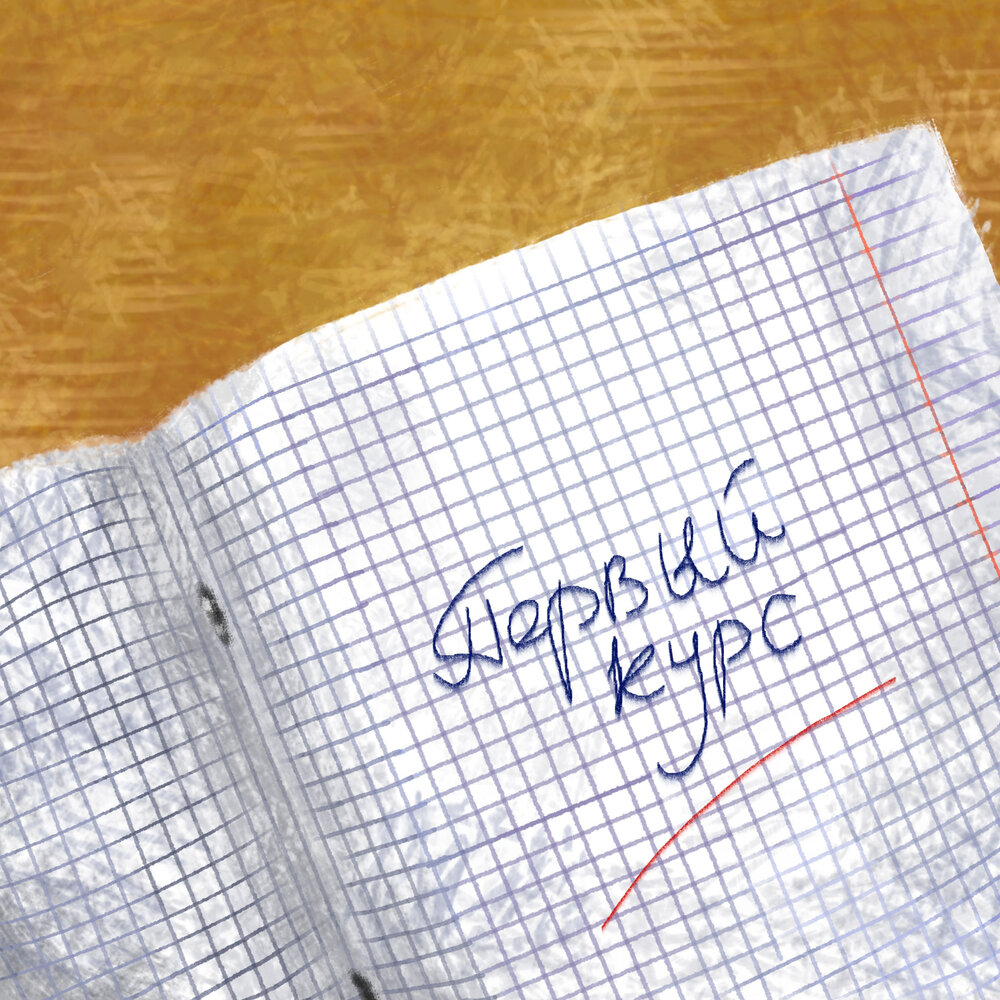 Первый
курс